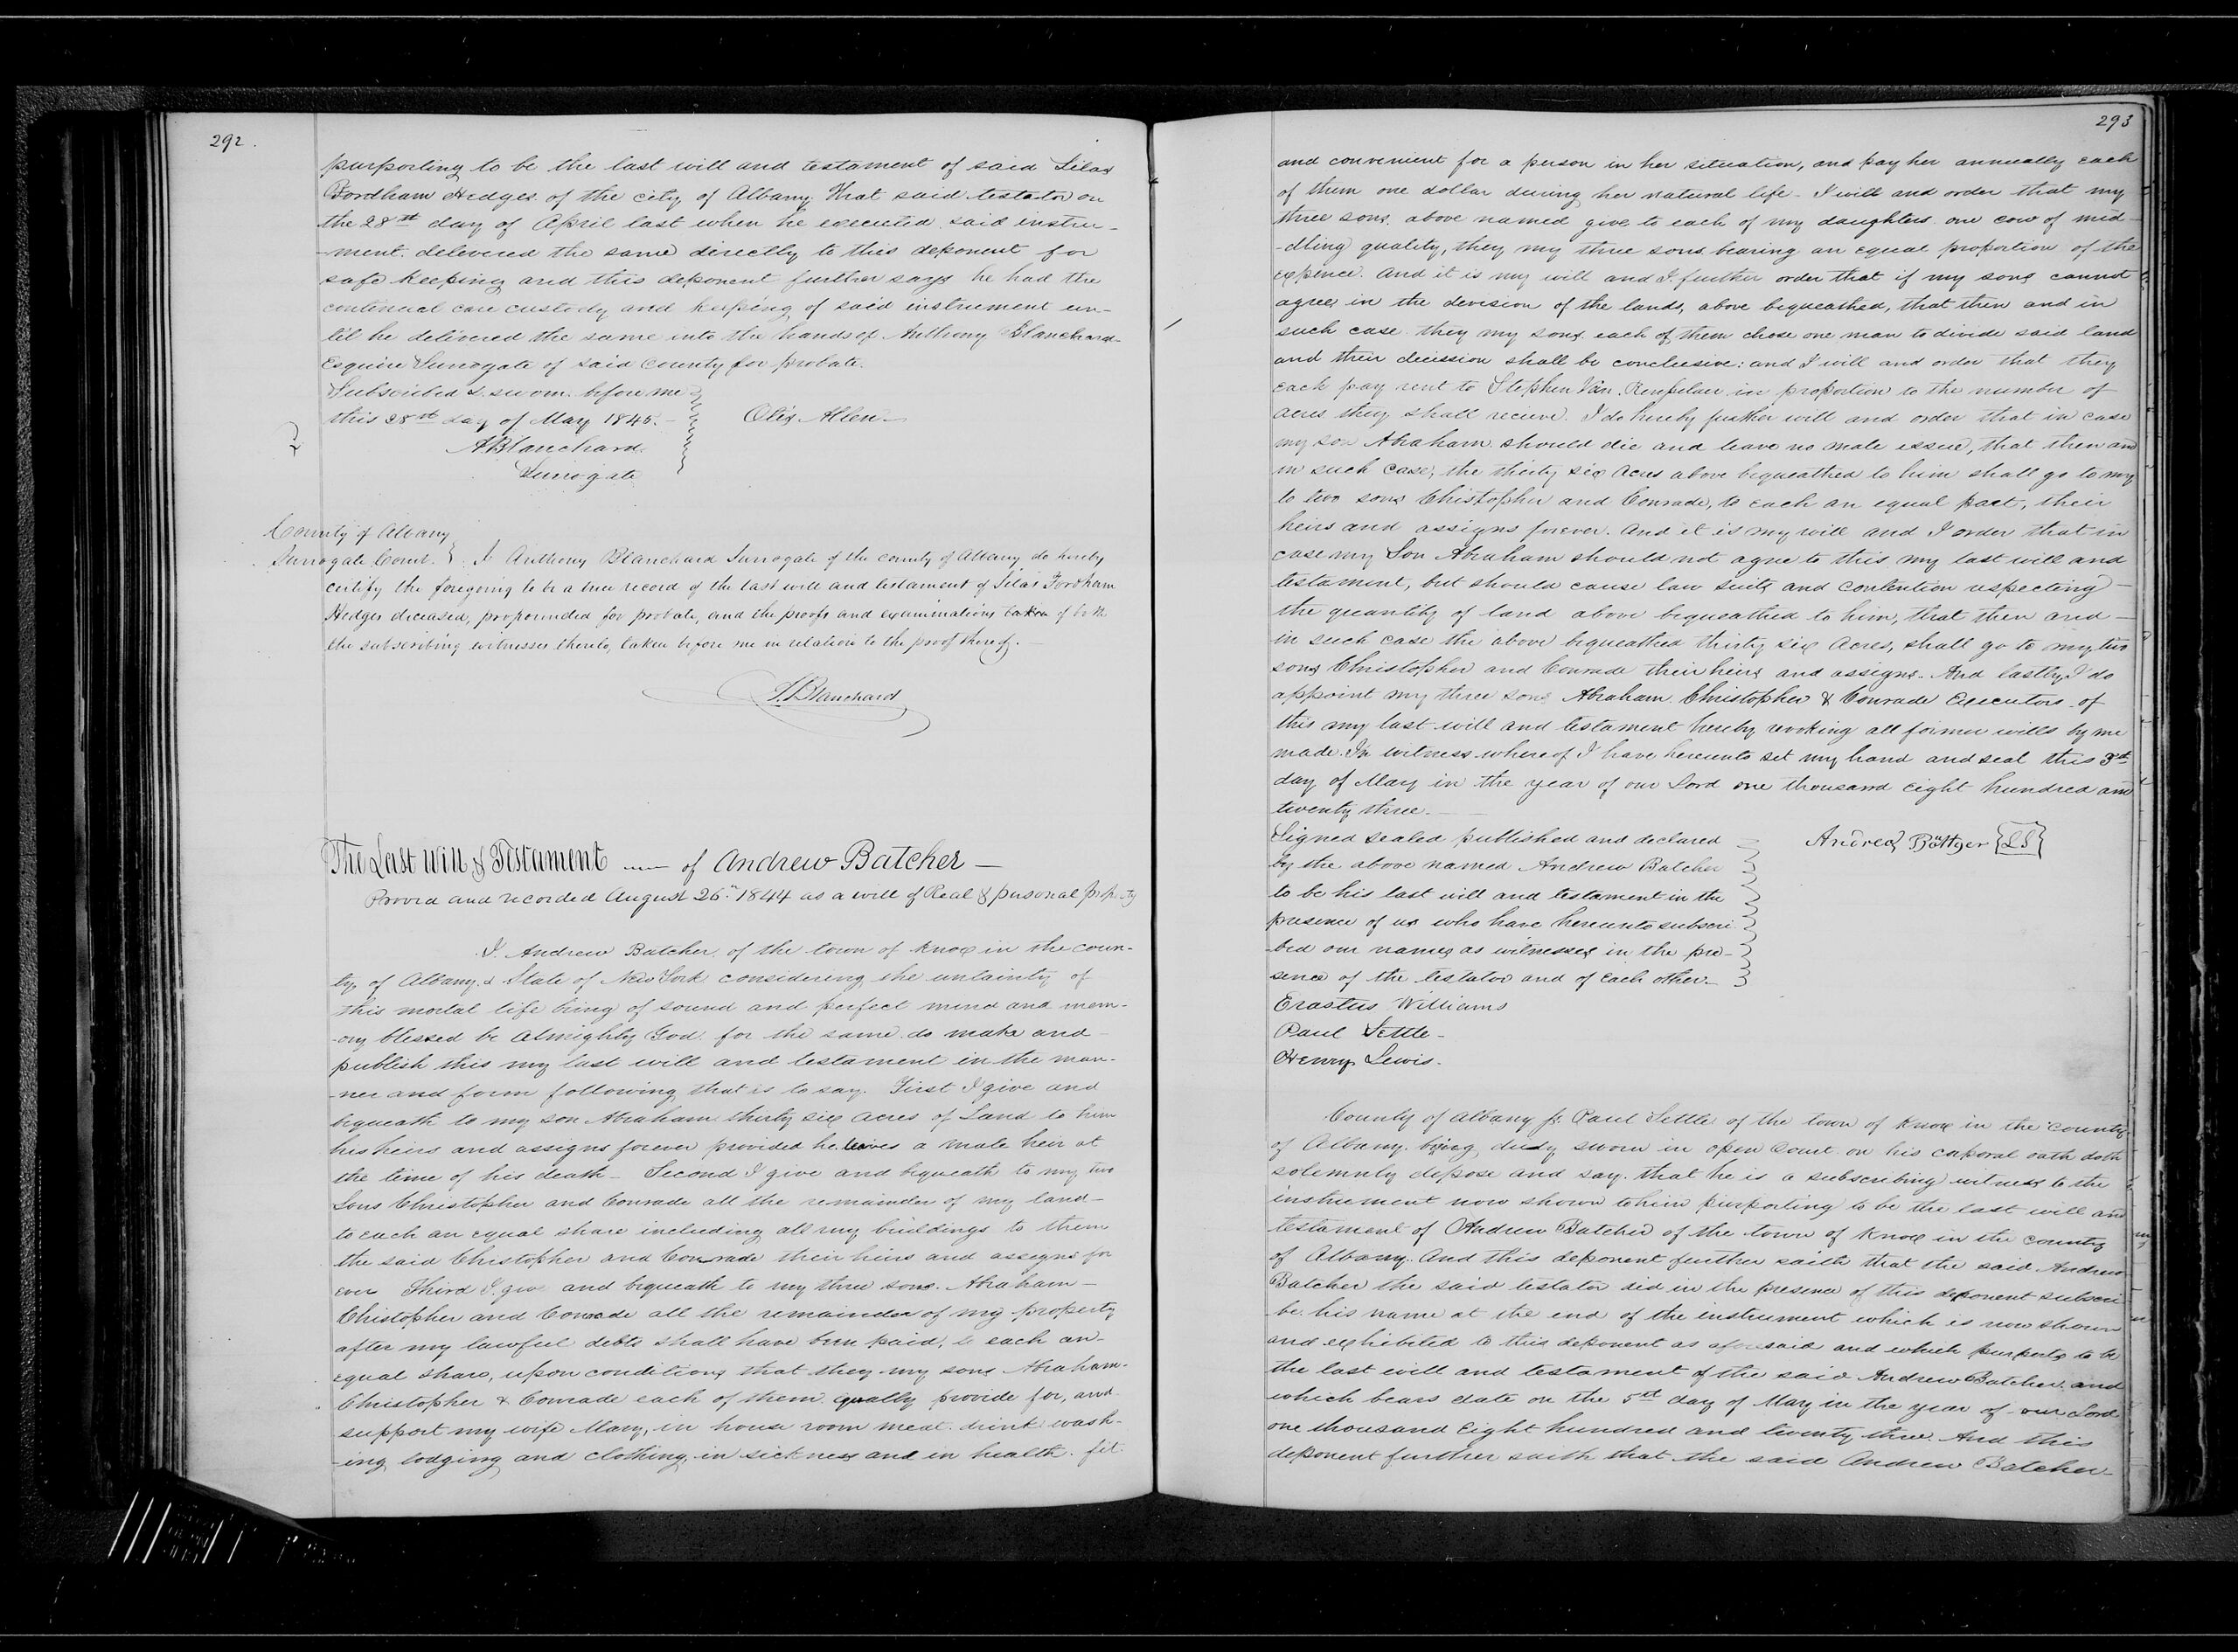 292.
purporting to be the last will and testament of said Silas
Fordham Hedges of the city of Albany. That said testator on
the 28st day of April last when he executed said instru-
-ment delivered the same directly to this deponent for
safe keeping and this deponent further says he had the
continual care custody and keeping of said instrument un-
til he delivered the same into the hands of Anthony Blanchard
Esquire Surrogate of said County for probate.
Subscribed & sworn before me
this 28st day of May 1845. Otis Allen
A Blanchard
Surrogate
County of Albany
Surrogate Court. } I Anthony Blanchard Surrogate of the county of Albany do hereby
certify the foregoing to be a true record of the last will and testament of Silas Fordham
Hedges deceased, propounded for probate, and the proofs and examinations taken of both
the subscribing witnesses thereto, taken before me in relation to the proof thereof.
A. Blanchard
The Last Will & Testament of Andrew Batcher
Proved and recorded August 26" 1844 as a will of Real & personal property
I. Andrew Batcher of the town of Knox in the coun-
ty of Albany & State of New York considering the untainty of
this mortal life being of sound and perfect mind and mem-
-ory blessed be Almighty God for the same do make and
publish this my last will and testament in the man-
-ner and form following that is to say. First I give and
bequeath to my son Abraham thirty six acres of Land to him
his heirs and assigns forever provided he leaves a male heir at
the time of his death - Second I give and bequeath to my two
Sons Christopher and Conrade all the remainder of my land-
to each an equal share including all my buildings to them
the said Christopher and Conrade their heirs and assigns for
ever Third I give and bequeath to my three sons. Abraham -
Christopher and Conrade all the remainder of my property
after my lawful debts shall have been paid, to each an-
equal share, upon conditions that they my sons Abraham-
Christopher & Conrade each of them qually provide for, and
support my wife Mary, in house room meat drink wash-
-ing lodging and clothing in sickness and in health fit
293
and convenient for a person in her situation, and pay her annually each
of them one dollar during her natural life - I will and order that my
three sons above named give to each of my daughters one cow of mid-
-dling quality, they my three sons bearing an equal proportion of the
expence. And it is my will and I further order that if my sons cannot
agree in the devision of the lands, above bequeathed, that then and in
such case they my sons each of them chose one man to divide said land
and their decission shall be conclusive: and I will and order that they
each pay rent to Stephen Van Renselaer in proportion to the number of
acres they shall recieve. I do hereby further will and order that in case
my son Abraham should die and leave no male essue, that then and
in such case, the thirty six Acres above bequeathed to him shall go to my
to two sons Christopher and Conrade, to each an equal part, their
heirs and assigns forever. And it is my will and I order that in
case my Son Abraham should not agree to this my last will and
testament, but should cause law suits and contention respecting -
the quantity of land above bequeathed to him, that then and -
in such case the above bequeathed thirty six Acres, shall go to my two
sons Christopher and Conrade their heirs and assigns. And lastly I do
appoint my three sons Abraham Christopher & Conrade Executors of
this my last will and testament hereby revoking all former wills by me
made. In witness whereof I have hereunto set my hand and seal this 3st
day of May in the year of our Lord one thousand eight hundred and
twenty three.
Signed sealed published and declared Andreas Böttger {LS}
by the above named Andrew Batcher
to be his last will and testament in the
presence of us who have hereunto subscri
-bed our names as witnesses in the pre-
sence of the testator and of each other-
Erastus Williams
Paul Settle -
Henry Lewis.
County of Albany ss Paul Settle of the town of Knox in the county
of Albany being duly sworn in open Court on his corporal oath doth
solemnly depose and say. that he is a subscribing witness to the
instrument now shown to him purporting to be the last will and
testament of Andrew Batcher of the town of Knox in the county
of Albany. And this deponent further saith that the said Andrew
Batcher the said testator did in the presence of this deponent subscri
-be his name at the end of the instrument which is now shown
and exhibited to this deponent as aforesaid and which purports to be
the last will and testament of the said Andrew Batcher and
which bears date on the 5st day of May in the year of our Lord
one thousand Eight hundred and twenty three. And this
deponent further saith that the said Andrew Batcher-